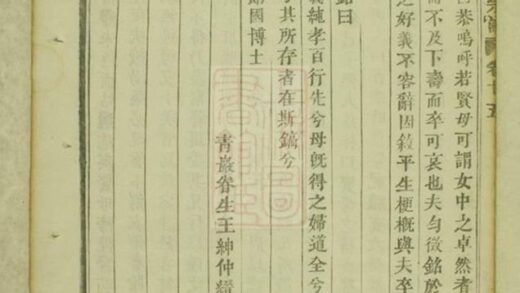 卷十五
恭嗚呼若賢母可謂女中之卓然者
而不及下壽而卒可哀也夫勻徵銘於
之好義不容辭因敘平生梗概與夫卒
銘曰
義純孝百行先兮母旣得之婦道全兮
其所存者在斯鎬兮
國博士
青巖眷生王紳仲縉